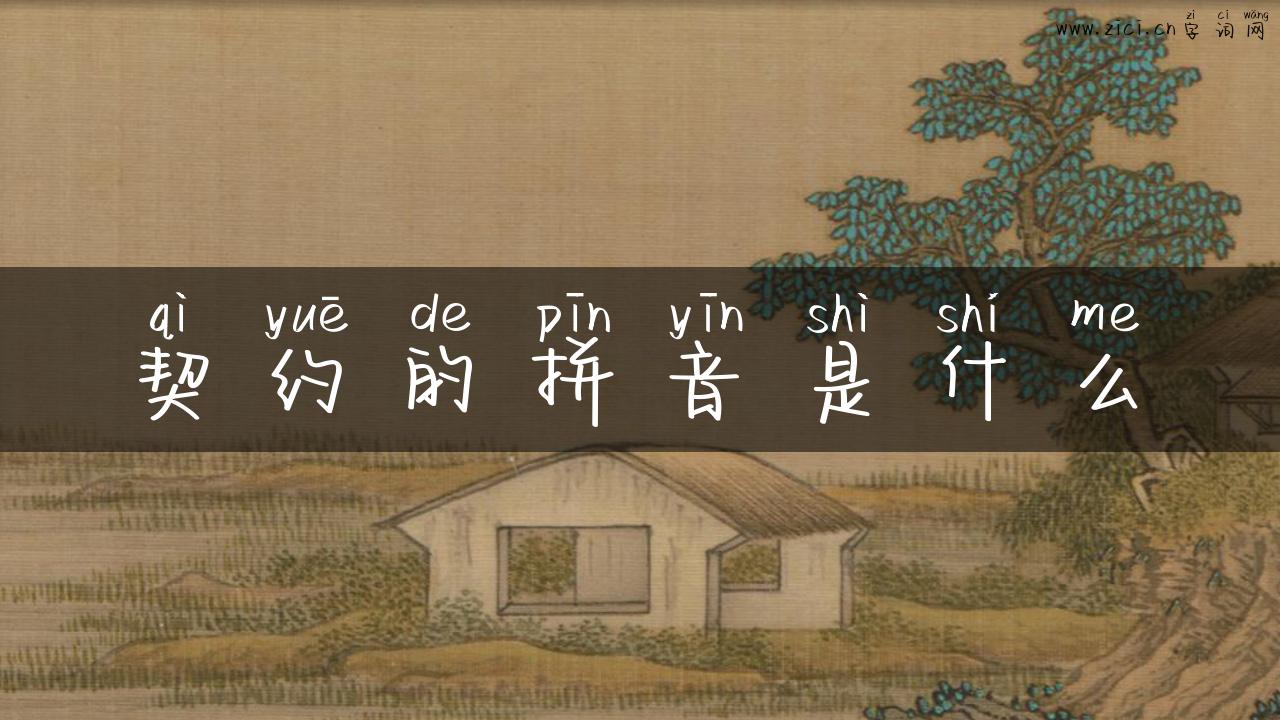 zì cí wǎng
www.zici.cn 字词网
qì yuē de pīn yīn shì shí me
契约的拼音是什么